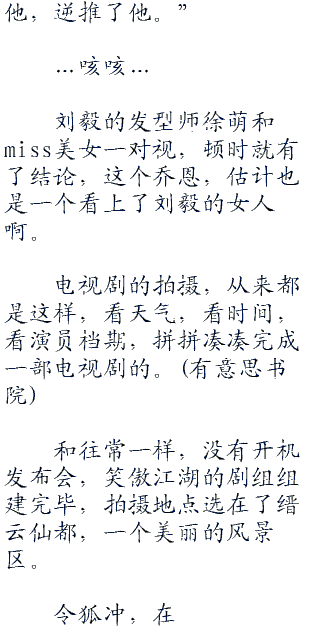 他，逆推了他。”
…咳咳…
刘毅的发型师徐萌和
miss美女一对视，顿时就有
了结论，这个乔恩，估计也
是一个看上了刘毅的女人
啊。
电视剧的拍摄，从来都
是这样，看天气，看时间，
看演员档期，拼拼凑凑完成
一部电视剧的。(有意思书
院)
和往常一样，没有开机
发布会，笑傲江湖的剧组组
建完毕，拍摄地点选在了缙
云仙都，一个美丽的风景
区。
令狐冲，在